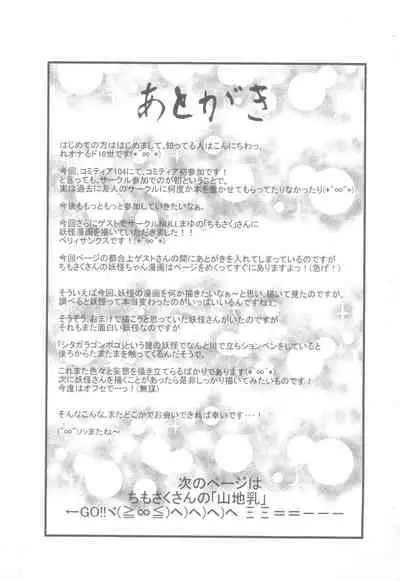 あとがき
はじめての方ははじめまして、知ってる人はこんにちわっ、
れオナるド16世です(*´∞`*)
今回、コミティア104にて、コミティア初参加です！
と言っても、サークル参加でのが初ということで、
実は過去に友人のサークルに何度か本を置かせてもらってたりなかったり(*´∞`*)
今後ももっともっと参加していきたいなぁ。
今回さらにゲストでサークルNULLまゆの「ちもさく」さんに
妖怪漫画を描いていただきました！！
ベリィサンクスです！(*´∞`*)
今回ページの都合上ゲストさんの間にあとがきを入れてしまっているのですが
ちもさくさんの妖怪ちゃん漫画はページをめくってすぐにありますよっ！(急げ！)
そういえば今回、妖怪の漫画を何か描きたいなぁ～と思い、描いて見たのですが、
調べると妖怪って本当変わったのがいっぱいいるんですねで、
そうそう、おまけで描こうと思っていた妖怪さんがいたのですが
それもまた面白い妖怪なのですが
「シタガラゴンボコ」という狸の妖怪でなんと田で立ちションベンをしていると
後ろからたまたまを触ってくるんだそうで、
これまた色々と妄想を掻き立てらるばかりであります(*´∞`*)
次に妖怪さんを描くことがあったら是非しっかり描いてみたいものです。
今度はオフセで…！(無謀)
そんなこんな、またどこかでお会いできれば幸いです…！
(*´∞`)ノシまたね～
次のページは
ちもさくさんの「山地乳」
←GO!!ヾ(≧∞≦)へ)へ)へ)へ ミミ＝＝ーーー